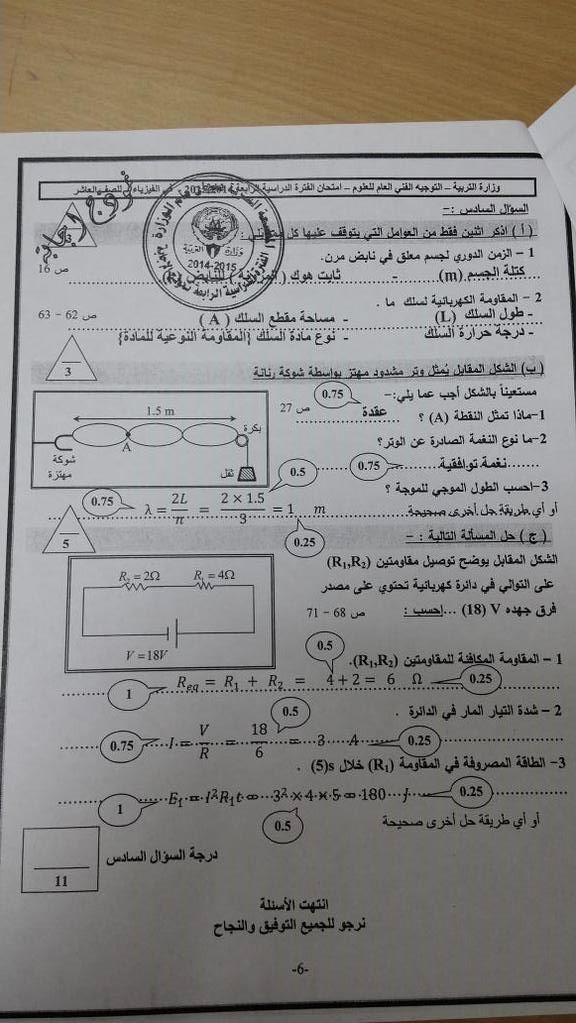 وزارة التربية – التوجيه الفني العام للعلوم – امتحان الفترة الدراسية الرابعة في الفيزياء للصف العاشر
نموذج اجابة
2014-2015
السؤال السادس :-
( أ ) اذكر اثنين فقط من العوامل التي يتوقف عليها كل
3
1 – الزمن الدوري لجسم معلق في نابض مرن.
ص 16
كتلة الجسم (m) - ثابت هوك ( للنابض
2 – المقاومة الكهربائية لسلك ما .
- طول السلك (L) - مساحة مقطع السلك ( A ) ص 62 – 63
- درجة حرارة السلك - نوع مادة السلك {المقاومة النوعية للمادة}
3
( ب ) الشكل المقابل يُمثل وتر مشدود مهتز بواسطة شوكة رنانة
مستعيناً بالشكل أجب عما يلي:-
0.75
1-ماذا تمثل النقطة (A) ؟ عقدة ص 27
2-ما نوع النغمة الصادرة عن الوتر؟
نغمة توافقية 0.75
3-احسب الطول الموجي للموجة ؟
0.5
0.75
λ = 2L/n = 2 × 1.5/3 = 1 m
أو أي طريقة حل أخرى صحيحة
0.25
1.5 m
بكرة
A
شوكة مهتزة
ثقل
5
( ج ) حل المسألة التالية : -
الشكل المقابل يوضح توصيل مقاومتين (R₁,R₂)
على التوالي في دائرة كهربائية تحتوي على مصدر
فرق جهده V (18) ...احسب : ص 68 – 71
R₂ = 2Ω R₁ = 4Ω
V = 18V
1 – المقاومة المكافئة للمقاومتين (R₁,R₂).
0.5
1 R_eq = R₁ + R₂ = 4 + 2 = 6 Ω 0.25
2 – شدة التيار المار في الدائرة .
0.5
0.75 I = V/R = 18/6 = 3 A 0.25
3- الطاقة المصروفة في المقاومة (R₁) خلال s(5) .
1 E₁ = I²R₁t = 3² × 4 × 5 = 180 J 0.25
0.5
أو أي طريقة حل أخرى صحيحة
درجة السؤال السادس
11
انتهت الأسئلة
نرجو للجميع التوفيق والنجاح
-6-